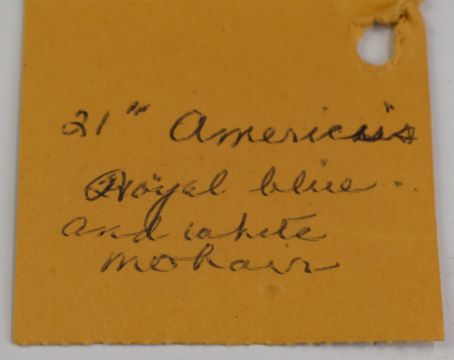 21" America's
Royal blue -
and white
mohair